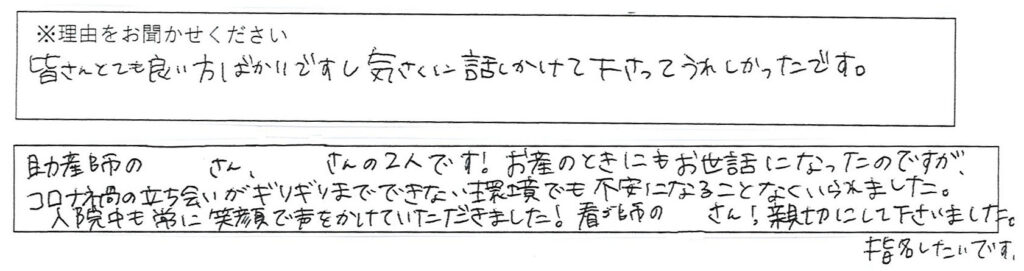 ※理由をお聞かせください
皆さんとても良い方ばかりですし気さくに話しかけて下さってうれしかったです。
助産師の さん、 さんの2人です！お産のときにもお世話になったのですが、
コロナ禍の立ち会いがギリギリまでできない環境でも不安になることなくいられました。
入院中も常に笑顔で声をかけていただきました！看護師の さん！親切にして下さいました。
指名したいです。